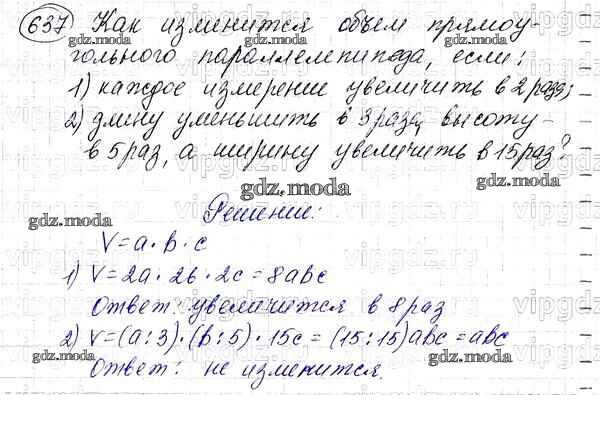 637 Как изменится объем прямоу-
гольного параллелепипеда, если:
1) каждое измерение увеличить в 2 раза;
2) длину уменьшить в 3 раза, высоту -
в 5 раз, а ширину увеличить в 15 раз?
gdz.moda
Решение:
V = a · b · c
1) V = 2a · 2b · 2c = 8abc
Ответ: увеличится в 8 раз
2) V = (a : 3) · (b : 5) · 15c = (15 : 15) abc = abc
Ответ: не изменится.